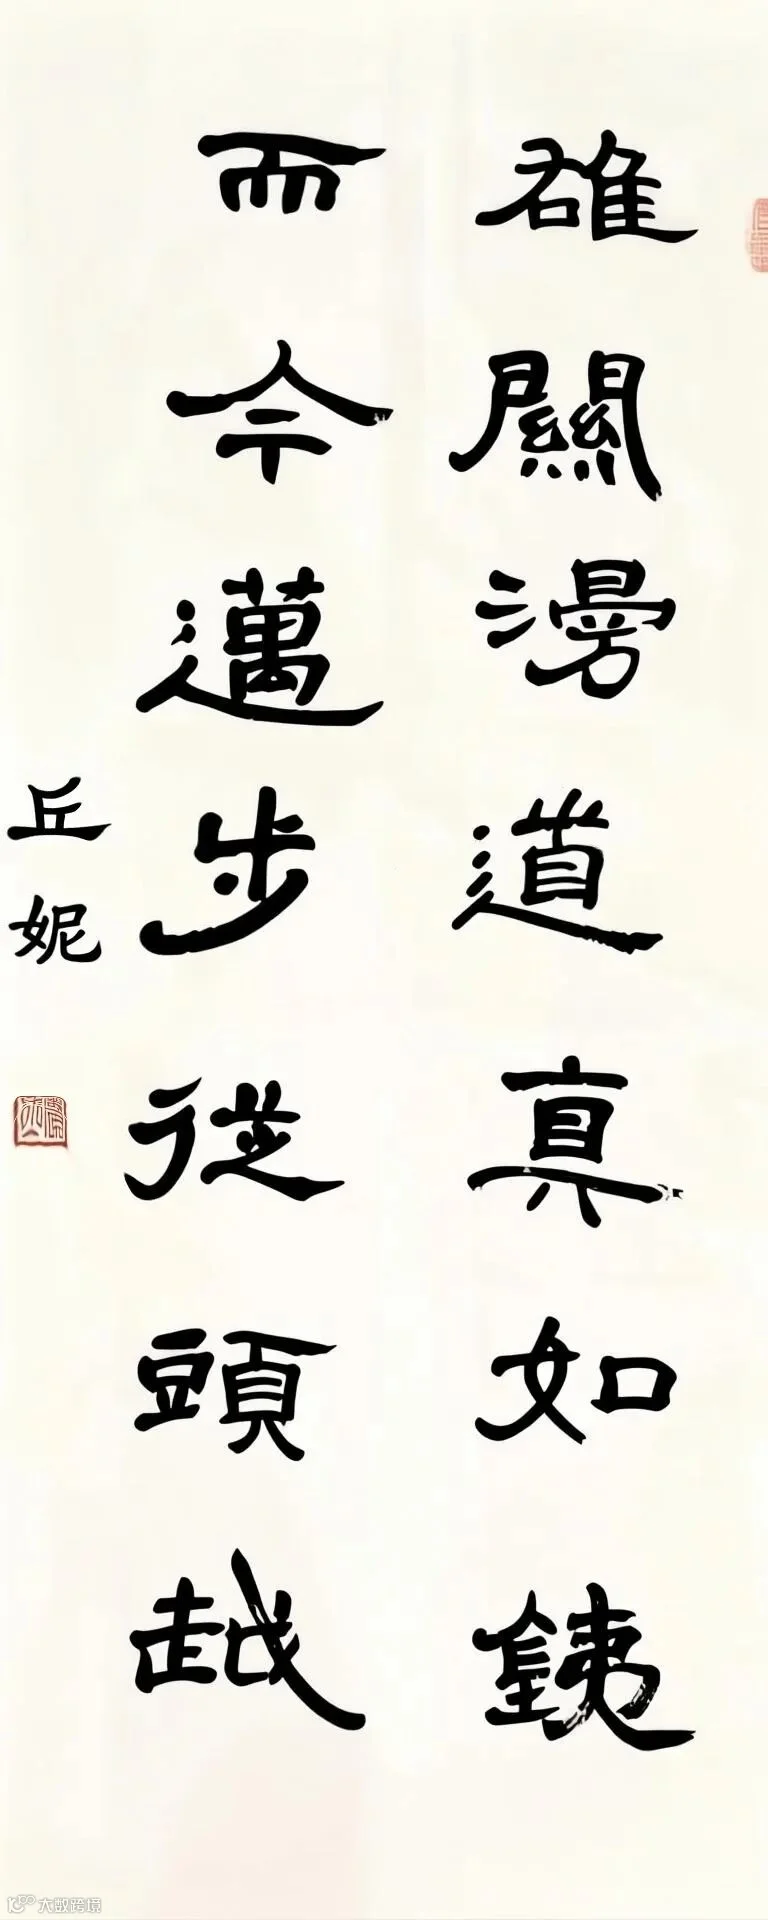 雄關漫道真如銕
而今邁步從頭越
丘妮
大数跨境